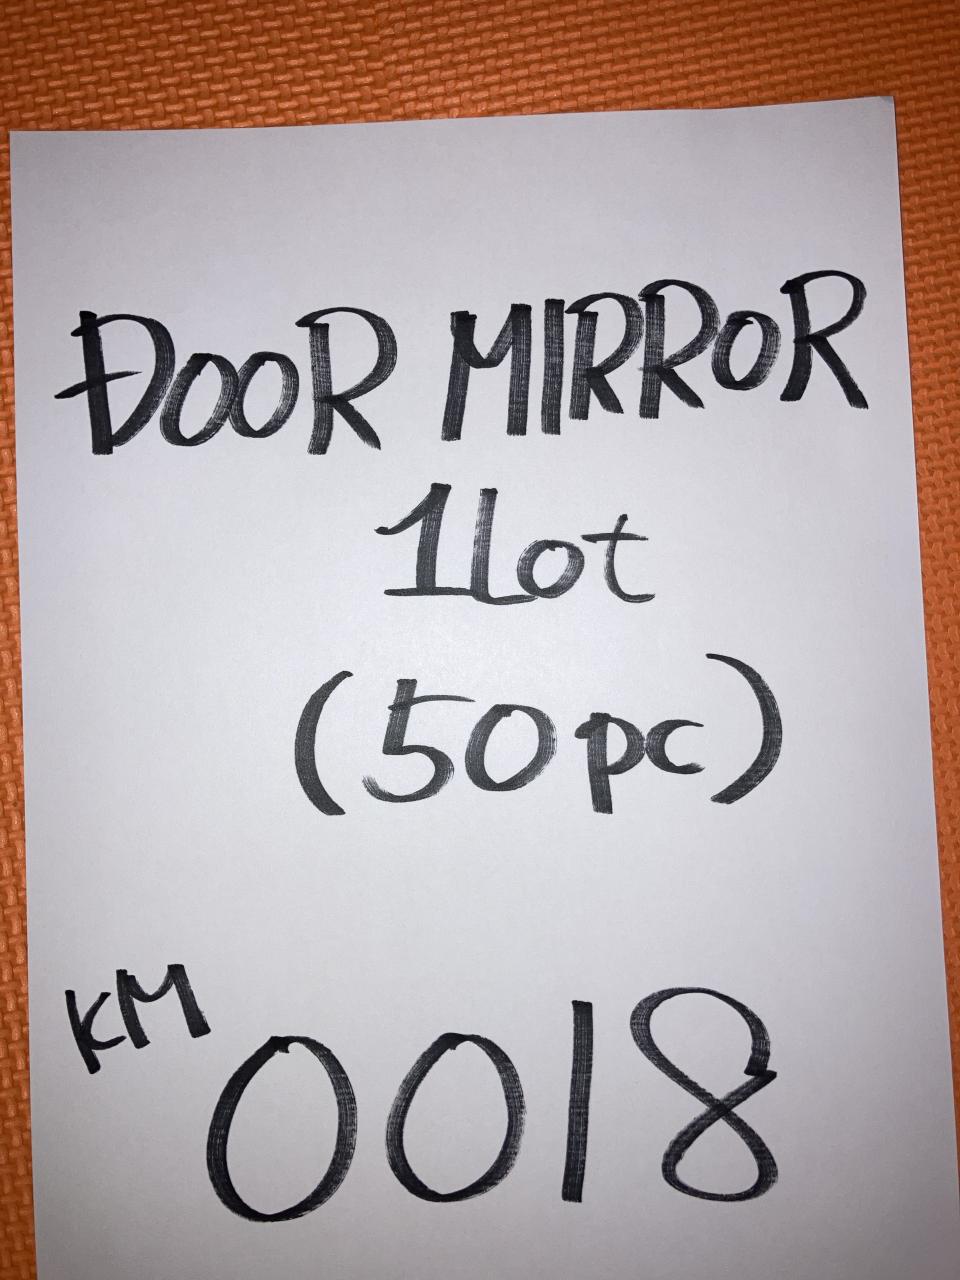 DOOR MIRROR
1 lot
(50 pc)
KM 0018